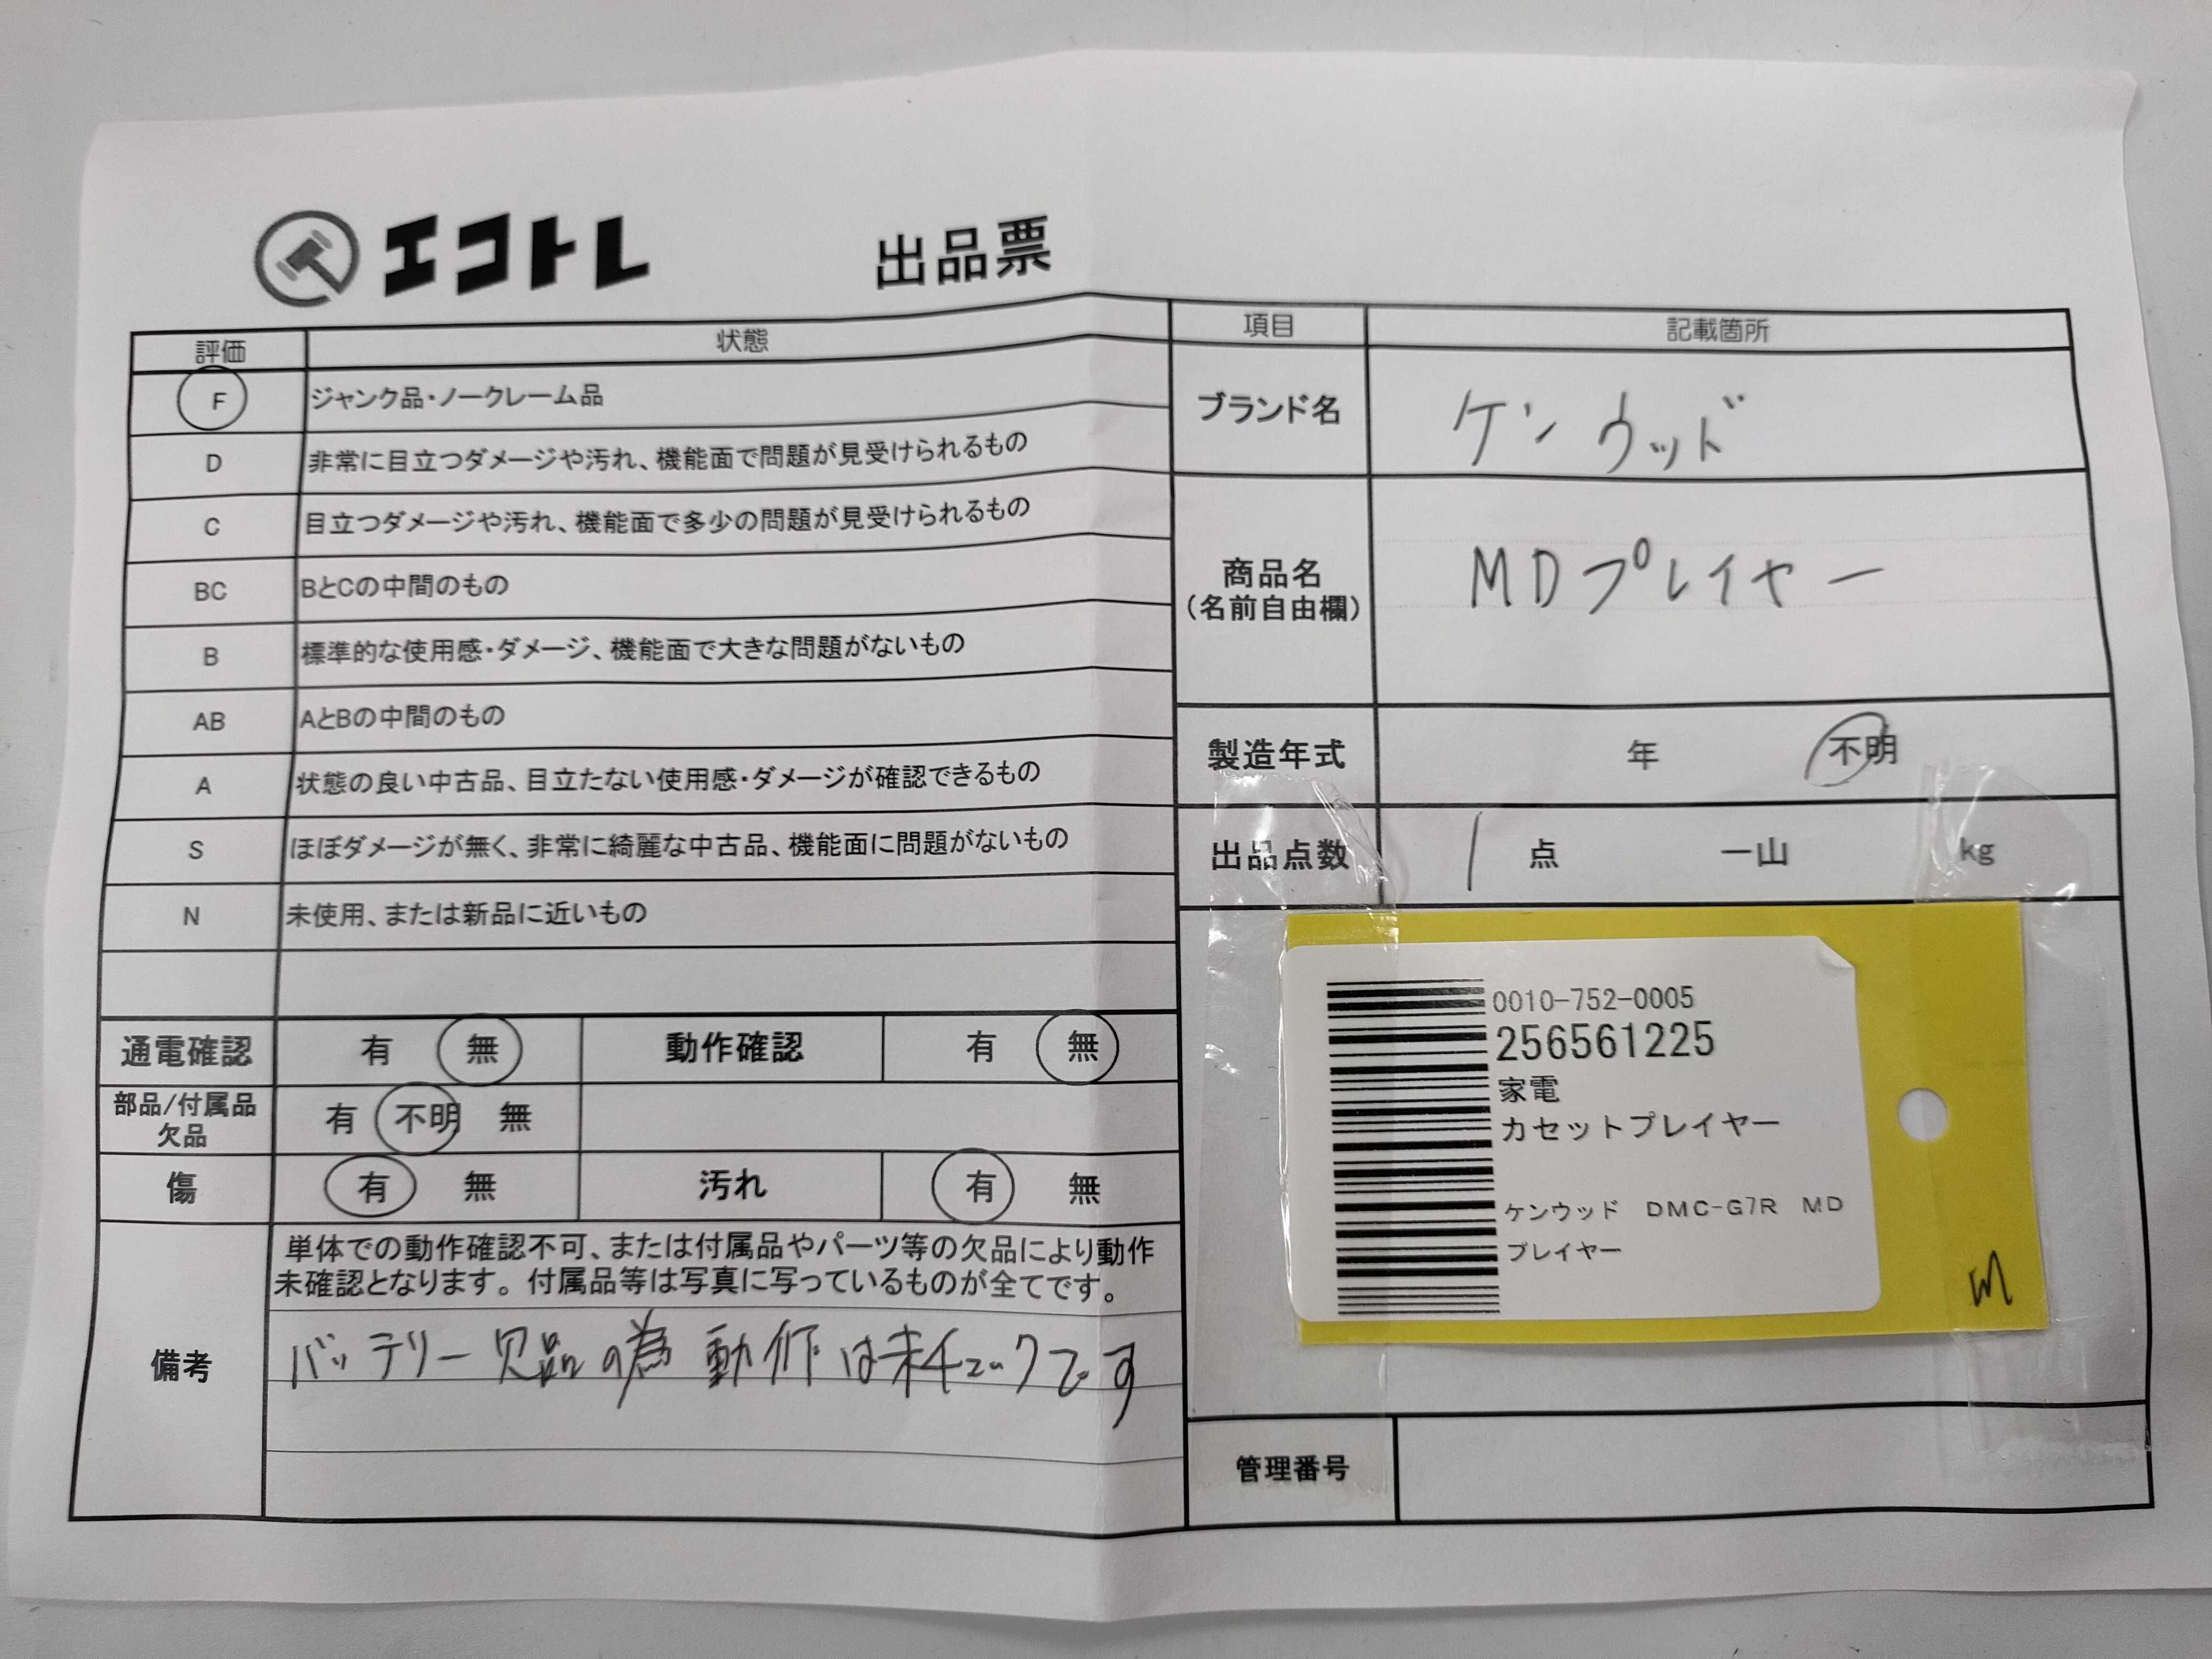 エコトレ 出品票
評価 状態
F ジャンク品・ノークレーム品
D 非常に目立つダメージや汚れ、機能面で問題が見受けられるもの
C 目立つダメージや汚れ、機能面で多少の問題が見受けられるもの
BC BとCの中間のもの
B 標準的な使用感・ダメージ、機能面で大きな問題がないもの
AB AとBの中間のもの
A 状態の良い中古品、目立たない使用感・ダメージが確認できるもの
S ほぼダメージが無く、非常に綺麗な中古品、機能面に問題がないもの
N 未使用、または新品に近いもの
通電確認 有 無 動作確認 有 無
部品/付属品
欠品 有 不明 無
傷 有 無 汚れ 有 無
備考
単体での動作確認不可、または付属品やパーツ等の欠品により動作
未確認となります。付属品等は写真に写っているものが全てです。
バッテリー欠品の為動作は未チェックです
項目 記載箇所
ブランド名 ケンウッド
商品名
(名前自由欄) MDプレイヤー
製造年式 年 不明
出品点数 1 点 一山 kg
0010-752-0005
256561225
家電
カセットプレイヤー
ケンウッド DMC-G7R MD
プレイヤー
M
管理番号